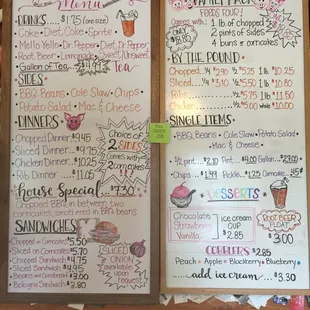 Menu
DRINKS... $1.75 (one size)
Coke • Diet Coke • Sprite •
Mello Yello • Dr. Pepper • Diet Dr. Pepper
Root Beer • Lemonade
Gallon of Tea
Tea
SIDES
BBQ Beans • Cole Slaw • Chips •
Potato Salad • Mac & Cheese
DINNERS
Chopped Dinner $9.45
Sliced Dinner $9.75
Chicken Dinner $10.25
Rib Dinner ....11.05
Choice of
2
SIDES
Comes with
2 corncakes
House Special
$7.30
Chopped BBQ in between two
corncakes, smothered in BBQ beans
SANDWICHES
Chopped on Corncake 5.50
Sliced on Corncake 5.70
Chopped Sandwich 4.75
Sliced Sandwich 4.95
Beans and Corncake 3.00
Bologna Sandwich 3.80
SLICED
ONION
available
upon
request!
FAMILY PACK
FEEDS FOUR!
Only
Comes with:
1 lb of chopped
2 pints of sides
4 buns or corncakes
BY THE POUND
Chopped 1/4 2.90 1/2 5.25 1 lb $10.25
Sliced 1/4 3.10 1/2 5.50 1 lb $10.60
Ribs 1/2 5.75 1 lb $11.50
Chicken 1/2 5.00 while $10.00
SINGLE ITEMS
•BBQ Beans • Cole Slaw • Potato Salad •
•Mac & Cheese •
1/2 pint $2.10 Pint $4.00 Gallon $27.00
Chips 1.99 Pickle 1.25 Corncake .45¢
DESSERTS
Chocolate
Strawberry
Vanilla
ice cream
CUP
$2.85
ROOT BEER
FLOAT
$3.00
COBBLERS
$2.85
Peach • Apple • Blackberry • Blueberry
...add ice cream... $3.30